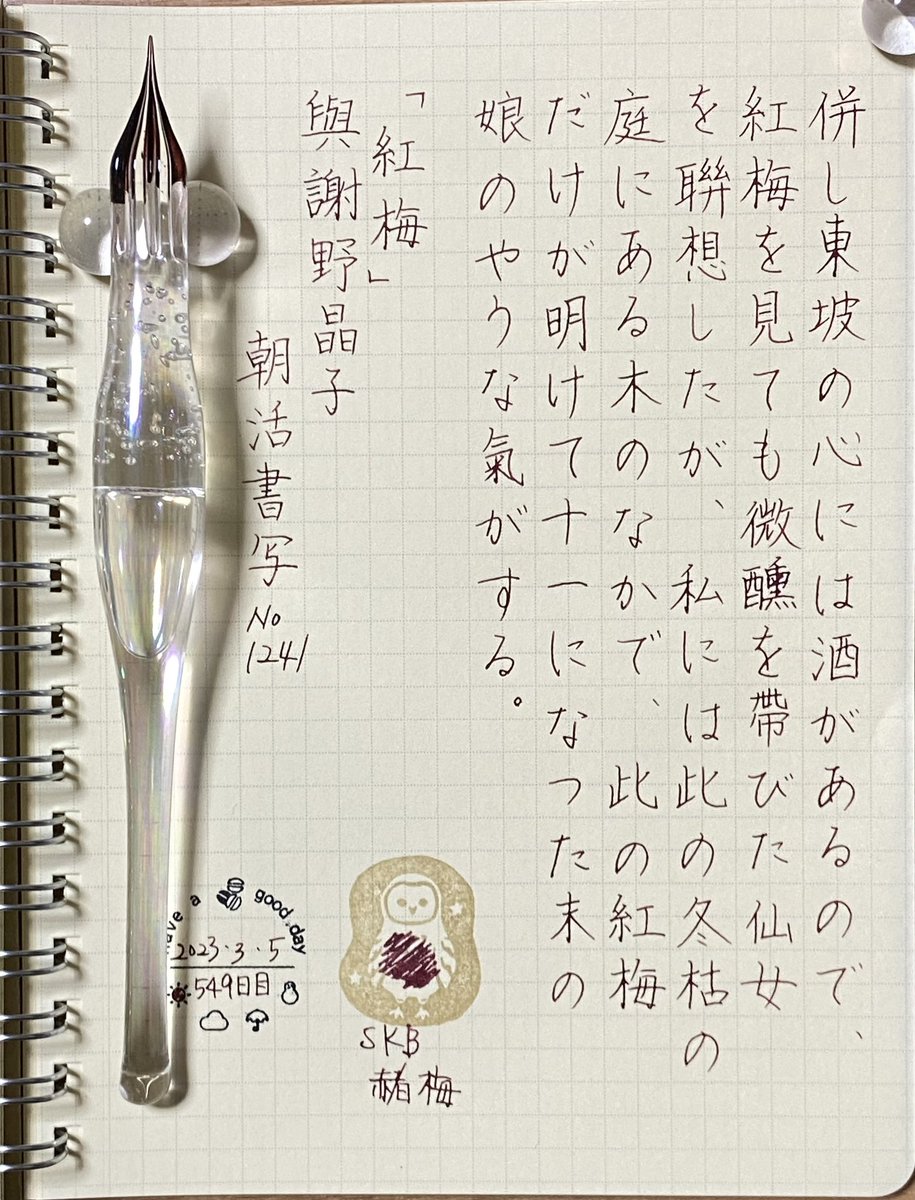 併し東坡の心には酒があるので、
紅梅を見ても微醺を帶びた仙女
を聯想したが、私には此の冬枯の
庭にある木のなかで、此の紅梅
だけが明けて十一になつた末の
娘のやうな氣がする。
「紅梅」
與謝野晶子
朝活書写
No
1241
have a good day
2023・3・5
549日目
SKB
赭梅